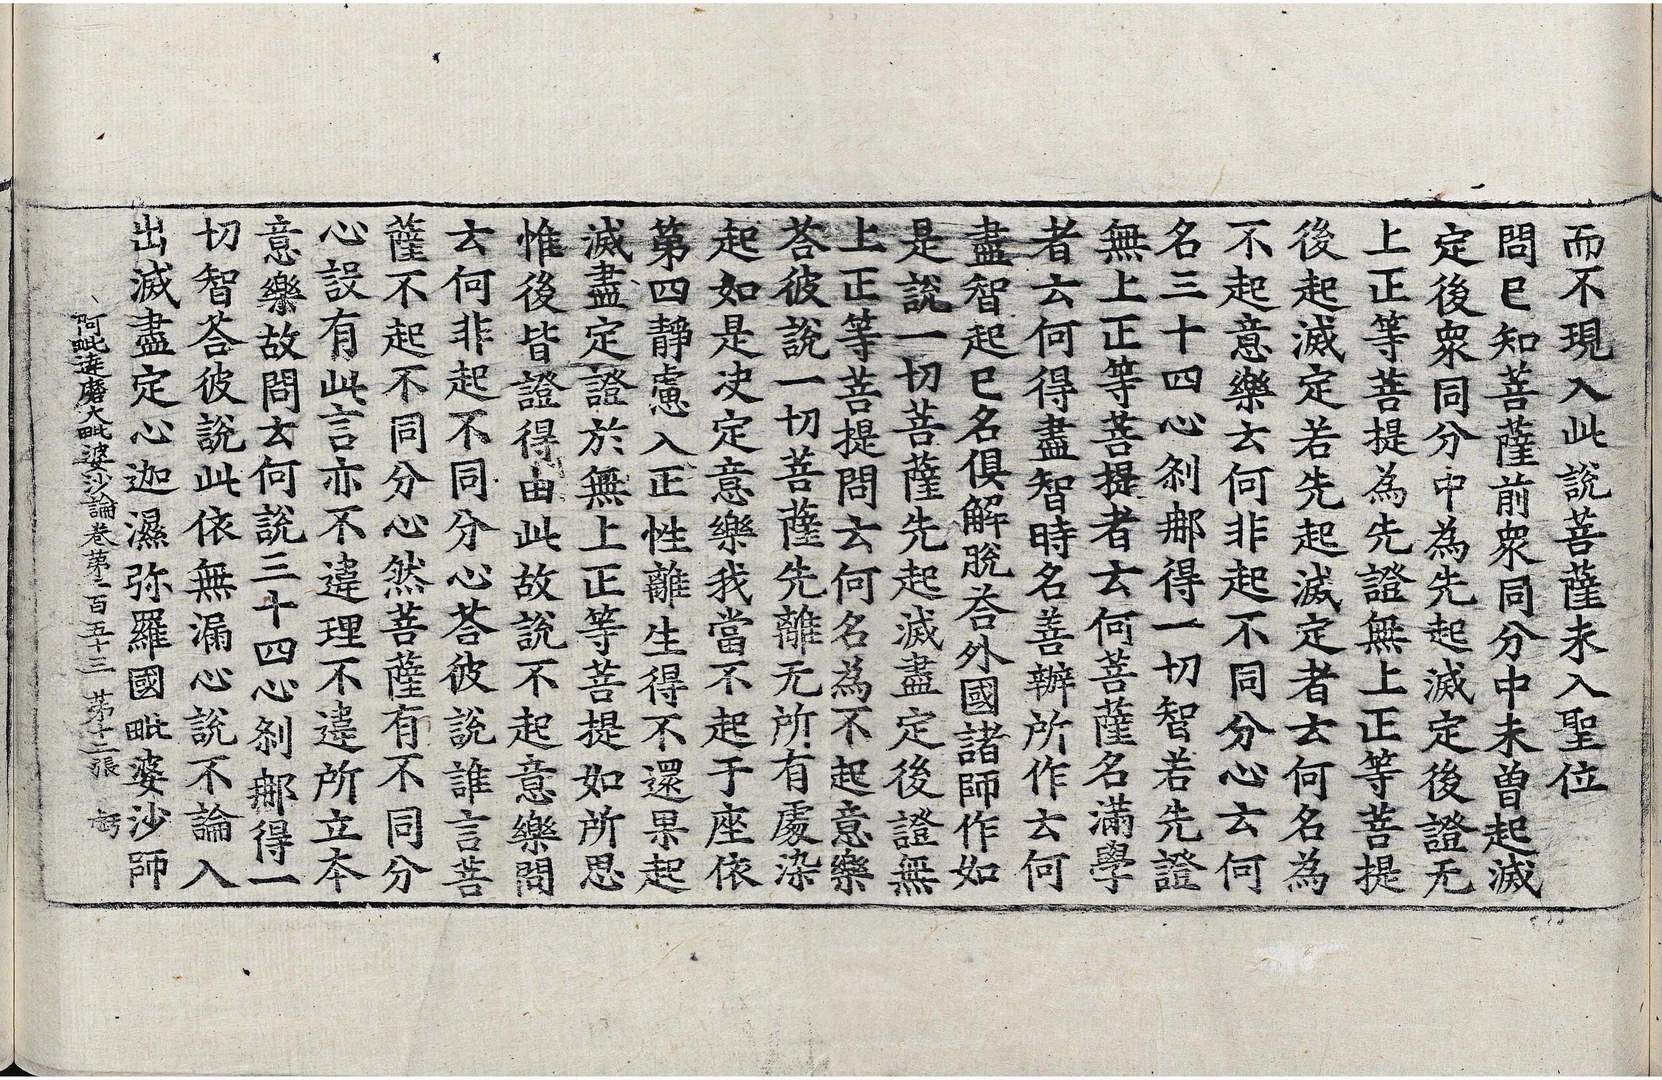 而不現入此說菩薩未入聖位
問已知菩薩前衆同分中未曽起滅
定後衆同分中為先起滅定後證无
上正等菩提為先證無上正等菩提
後起滅定若先起滅定者云何名為
不起意樂云何非起不同分心云何
名三十四心刹郍得一切智若先證
無上正等菩提者云何菩薩名滿學
者云何得盡智時名善辦所作云何
盡智起已名俱解脫荅外國諸師作如
是說一切菩薩先起滅盡定後證無
上正等菩提問云何名為不起意樂
荅彼說一切菩薩先離无所有處染
起如是决定意樂我當不起于座依
第四靜慮入正性離生得不還果起
滅盡定證於無上正等菩提如所思
惟後皆證得由此故說不起意樂問
云何非起不同分心荅彼說誰言菩
薩不起不同分心然菩薩有不同分
心設有此言亦不違理不違所立夲
意樂故問云何說三十四心刹郍得一
切智荅彼說此依無漏心說不論入
出滅盡定心迦濕弥羅國毗婆沙師
阿毗達磨大毗婆沙論卷第一百五十三 第十二張